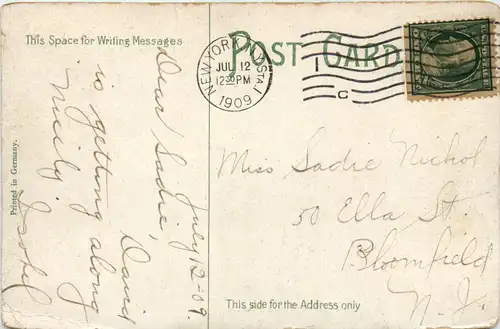 This Space for Writing Messages
POST CARD
NEW YORK, N.Y. STA. I
JUL 12
12 30 PM
1909
1
C
July 12-09.
Dear Sadie,
David
is getting along
nicely.
Isabel
Printed in Germany.
Miss Sadie Nichol
50 Ella St.
Bloomfield
N. J.
This side for the Address only